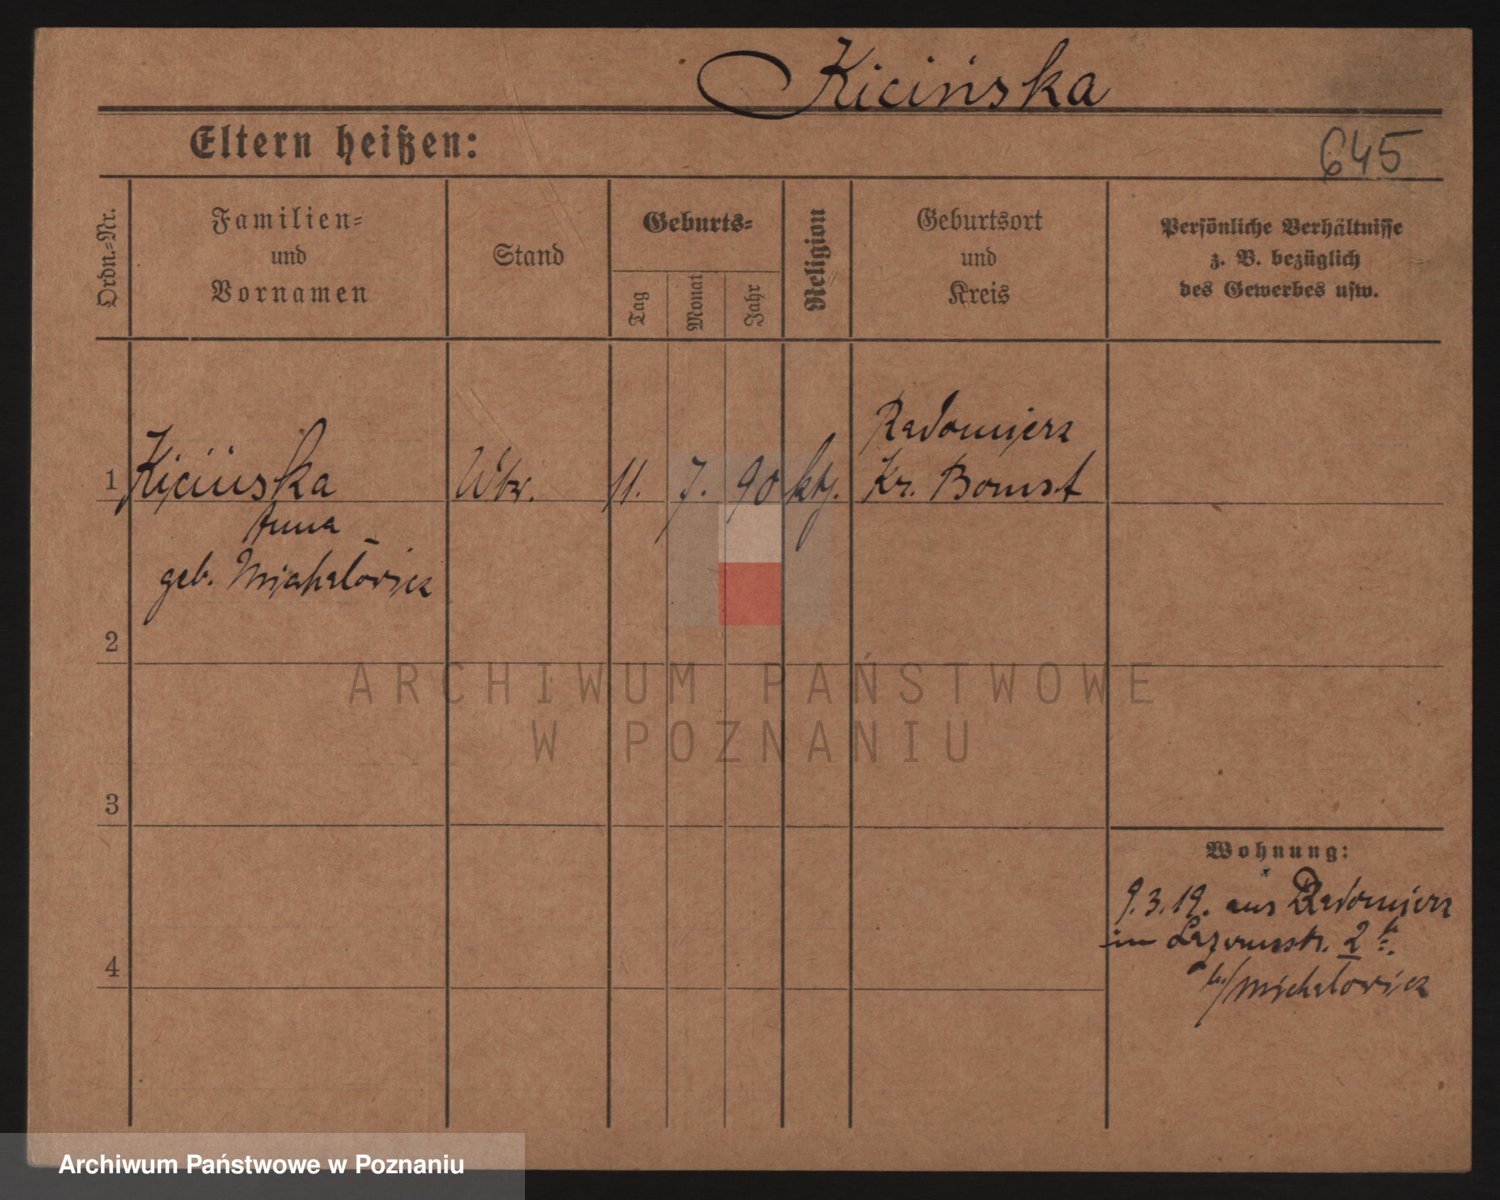 Kicińska
Eltern heißen:
645
Ordn.=Nr.
Familien=
und
Vornamen
Stand
Geburts=
Tag
Monat
Jahr
Religion
Geburtsort
und
Kreis
Persönliche Verhältnisse
z. B. bezüglich
des Gewerbes usw.
1
Kicińska
Anna
geb. Michałowicz
Wwr.
11.
7.
90
kth.
Radomierz
Kr. Bomst
2
3
4
Wohnung:
9.3.19. aus Radomierz
in Lazarusstr. 2
b/ Michałowicz
ARCHIWUM PAŃSTWOWE
W POZNANIU
Archiwum Państwowe w Poznaniu